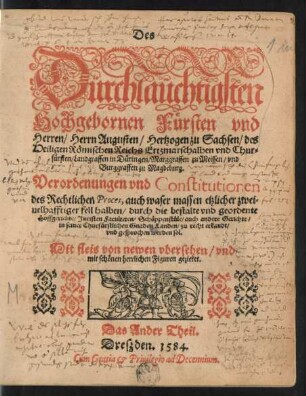 Des
Durchlauchtigsten
Hochgebornen Fürsten vnd
Herren/ Herrn Augusten/ Hertzogen zu Sachsen/ des
Heiligen Römischen Reichs Ertzmarschalhen vnd Chur-
fürsten/ Landgraffen in Düringen/ Marggraffen zu Meissen/ vnd
Burggraffen zu Magdeburg.
Verordenungen vnd Constitutionen
des Rechtlichen Proces, auch waser massen etzlicher zwei-
uelhafftiger fell halben/ durch die bestalte vnd geordente
Hoffgerichte/ Juristen Faculteten/ Schöppenstüle/ auch andere Gerichte/
in seiner Churfürstlichen Gnaden Landen/ zu recht erkandt/
vnd gesprochen werden sol.
Mit fleis von newen vbersehen/ vnd
mit schönen herrlichen Figuren gezieret.
Das Ander Theil.
Dreszden. 1584.
Cum Gratia & Priuilegio ad Decennium.